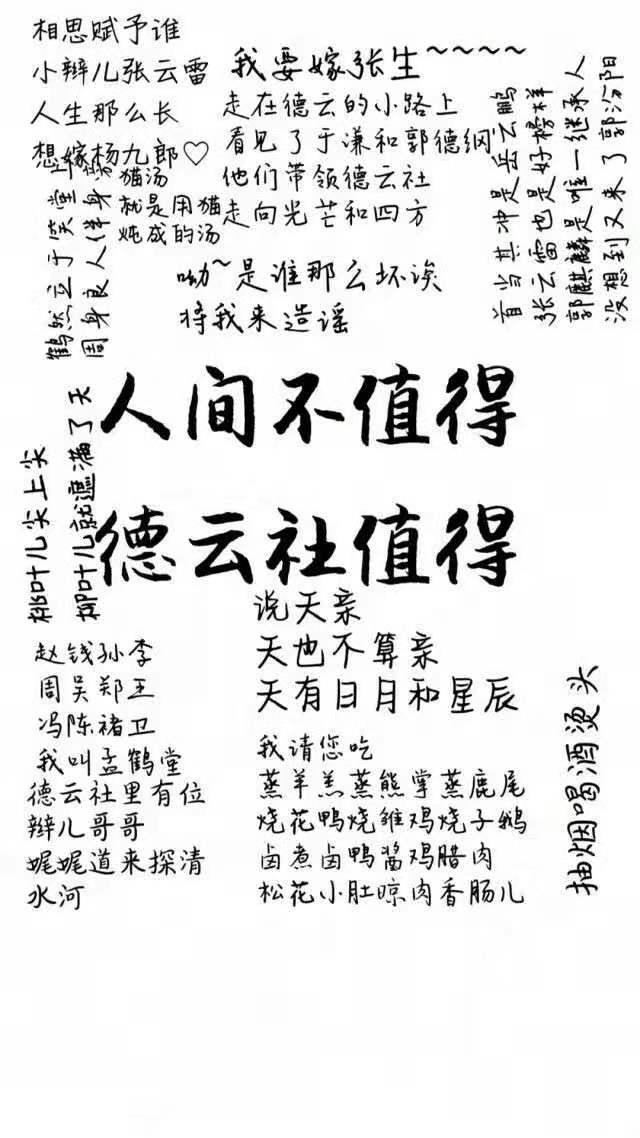 相思赋予谁
小辫儿张云雷
人生那么长
想嫁杨九郎♡
我要嫁张生~~~~
走在德云的小路上
看见了于谦和郭德纲
他们带领德云社
走向光芒和四方
猫汤
就是用猫
炖成的汤
鹤然立于笑堂
周身良人伴身旁
首当其冲是岳云鹏
张云雷也是好榜样
郭麒麟是唯一继承人
没想到又来了郭汾阳
呦~是谁那么坏诶
将我来造谣
人间不值得
德云社值得
柳叶儿尖上尖
柳叶儿就遮满了天
说天亲
天也不算亲
天有日月和星辰
赵钱孙李
周吴郑王
冯陈褚卫
我叫孟鹤堂
德云社里有位
辫儿哥哥
娓娓道来探清
水河
我请您吃
蒸羊羔蒸熊掌蒸鹿尾
烧花鸭烧雏鸡烧子鹅
卤煮卤鸭酱鸡腊肉
松花小肚晾肉香肠儿
抽烟喝酒烫头